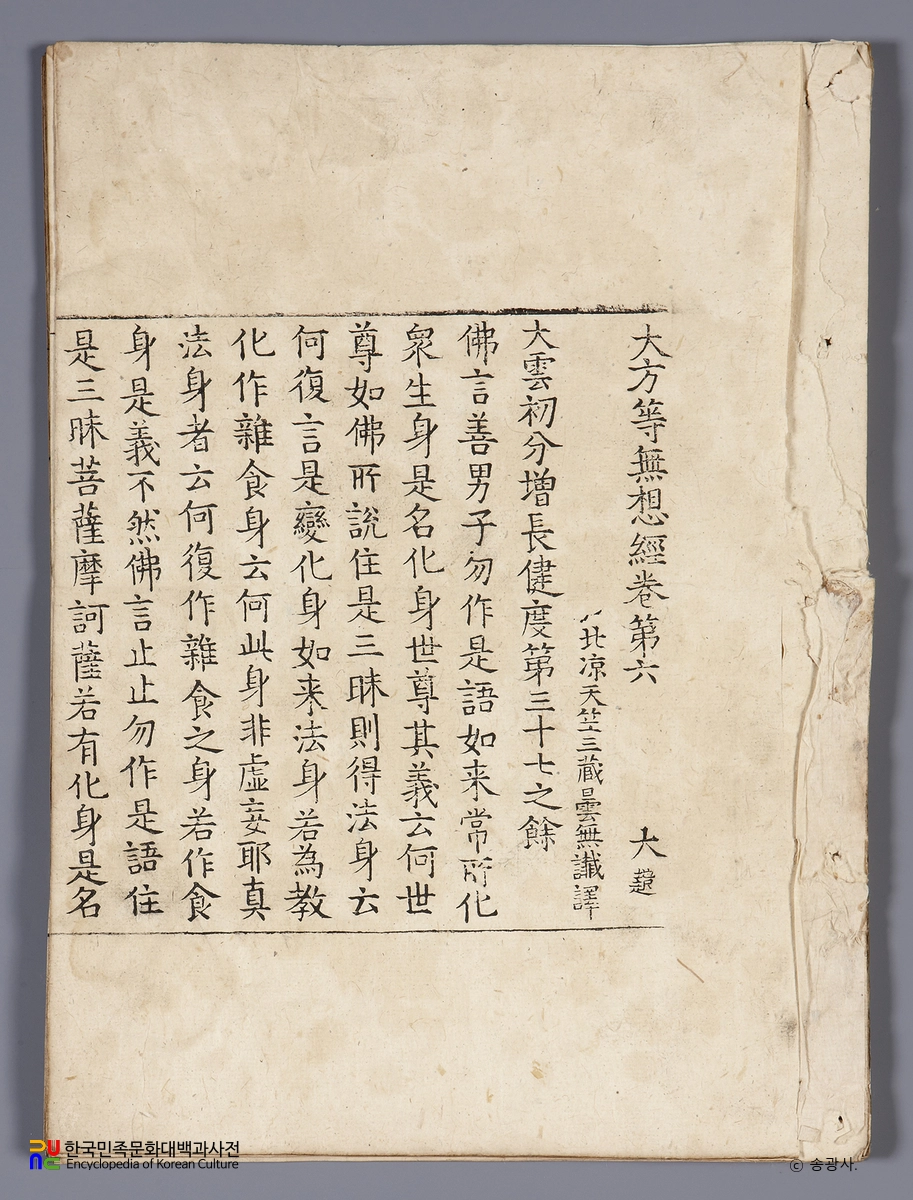 大方等無想經卷第六 大
北凉天竺三藏曇無讖譯
大雲初分增長健度第三十七之餘
佛言善男子勿作是語如来常所化
衆生身是名化身世尊其義云何世
尊如佛所說住是三昧則得法身云
何復言是變化身如来法身若為教
化作雜食身云何此身非虛妄耶真
法身者云何復作雜食之身若作食
身是義不然佛言止止勿作是語住
是三昧菩薩摩訶薩若有化身是名
한국민족문화대백과사전
Encyclopedia of Korean Culture
© 송광사.